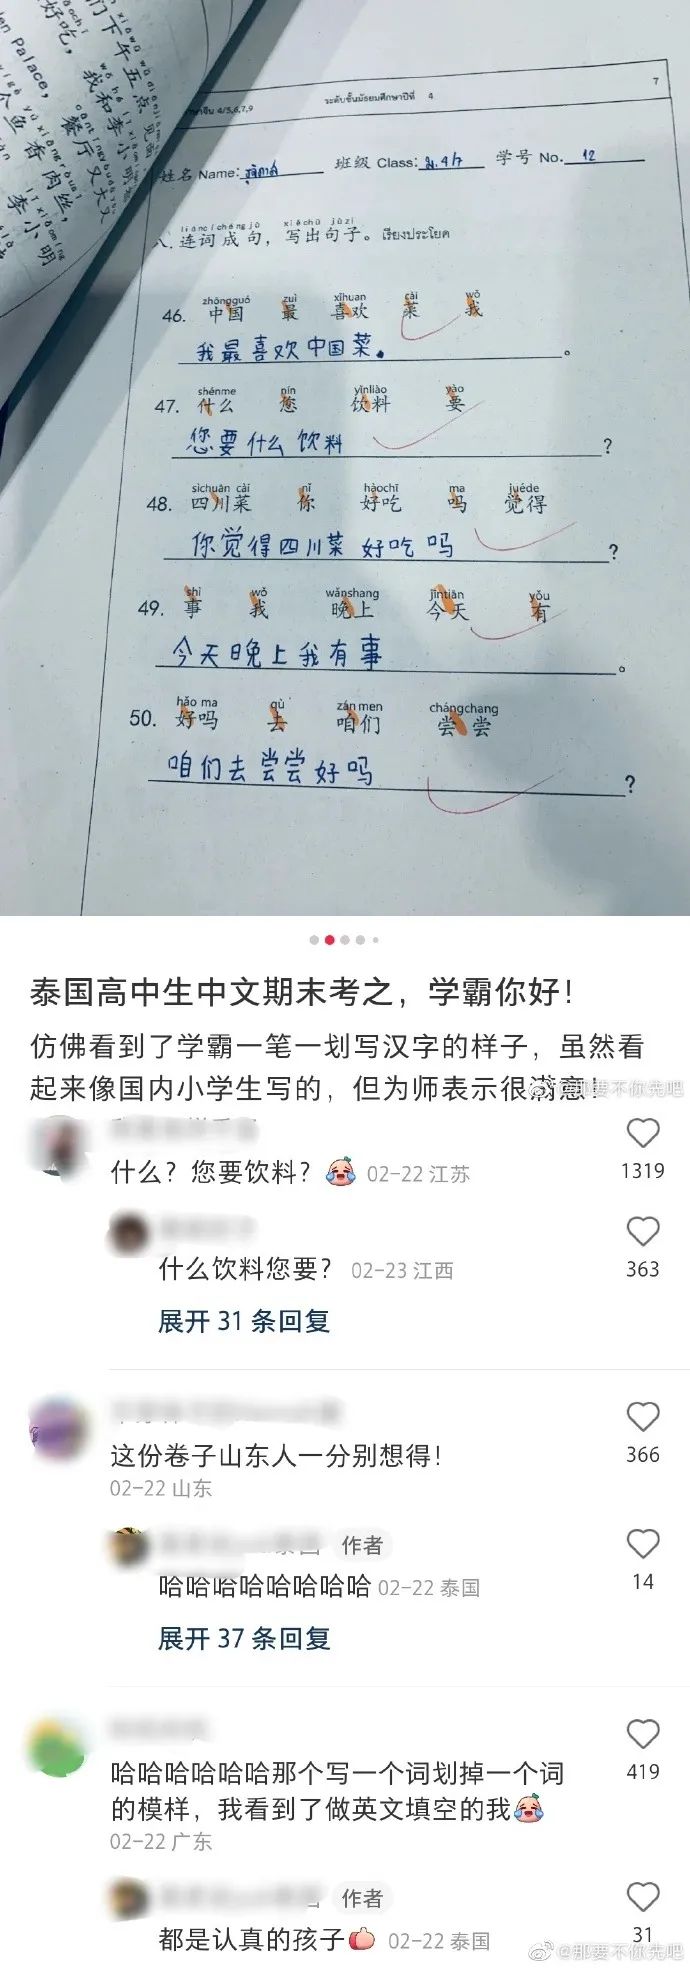 们下午五点见面
好吃，我和李小明
Palace，餐厅又大又
个鱼香肉丝，
李小明
4/5,6,7,9
ระดับชั้นมัธยมศึกษาปีที่ 4
7
姓名 Name: 班级 Class: ม.4/7 学号 No. 12
liáncíchéngjù xiěchū jùzi
八.连词成句，写出句子。เรียงประโยค
zhōngguó zuì xǐhuan cài wǒ
46. 中国 最 喜欢 菜 我
我最喜欢中国菜。
shénme nín yǐnliào yào
47. 什么 您 饮料 要
您要什么饮料?
sìchuān cài nǐ hǎochī ma juéde
48. 四川菜 你 好吃 吗 觉得
你觉得四川菜好吃吗?
shì wǒ wǎnshang jīntiān yǒu
49. 事 我 晚上 今天 有
今天晚上我有事。
hǎo ma qù zán men chángchang
50. 好吗 去 咱们 尝尝
咱们去尝尝好吗?
泰国高中生中文期末考之，学霸你好！
仿佛看到了学霸一笔一划写汉字的样子，虽然看
起来像国内小学生写的，但为师表示很满意！
@那要不你先吧
什么？您要饮料？ 02-22 江苏
1319
什么饮料您要？ 02-23 江西
363
展开 31 条回复
这份卷子山东人一分别想得！
366
02-22 山东
作者
哈哈哈哈哈哈哈哈 02-22 泰国
14
展开 37 条回复
哈哈哈哈哈哈那个写一个词划掉一个词
419
的模样，我看到了做英文填空的我
02-22 广东
作者
都是认真的孩子 02-22 泰国
31
@那要不你先吧